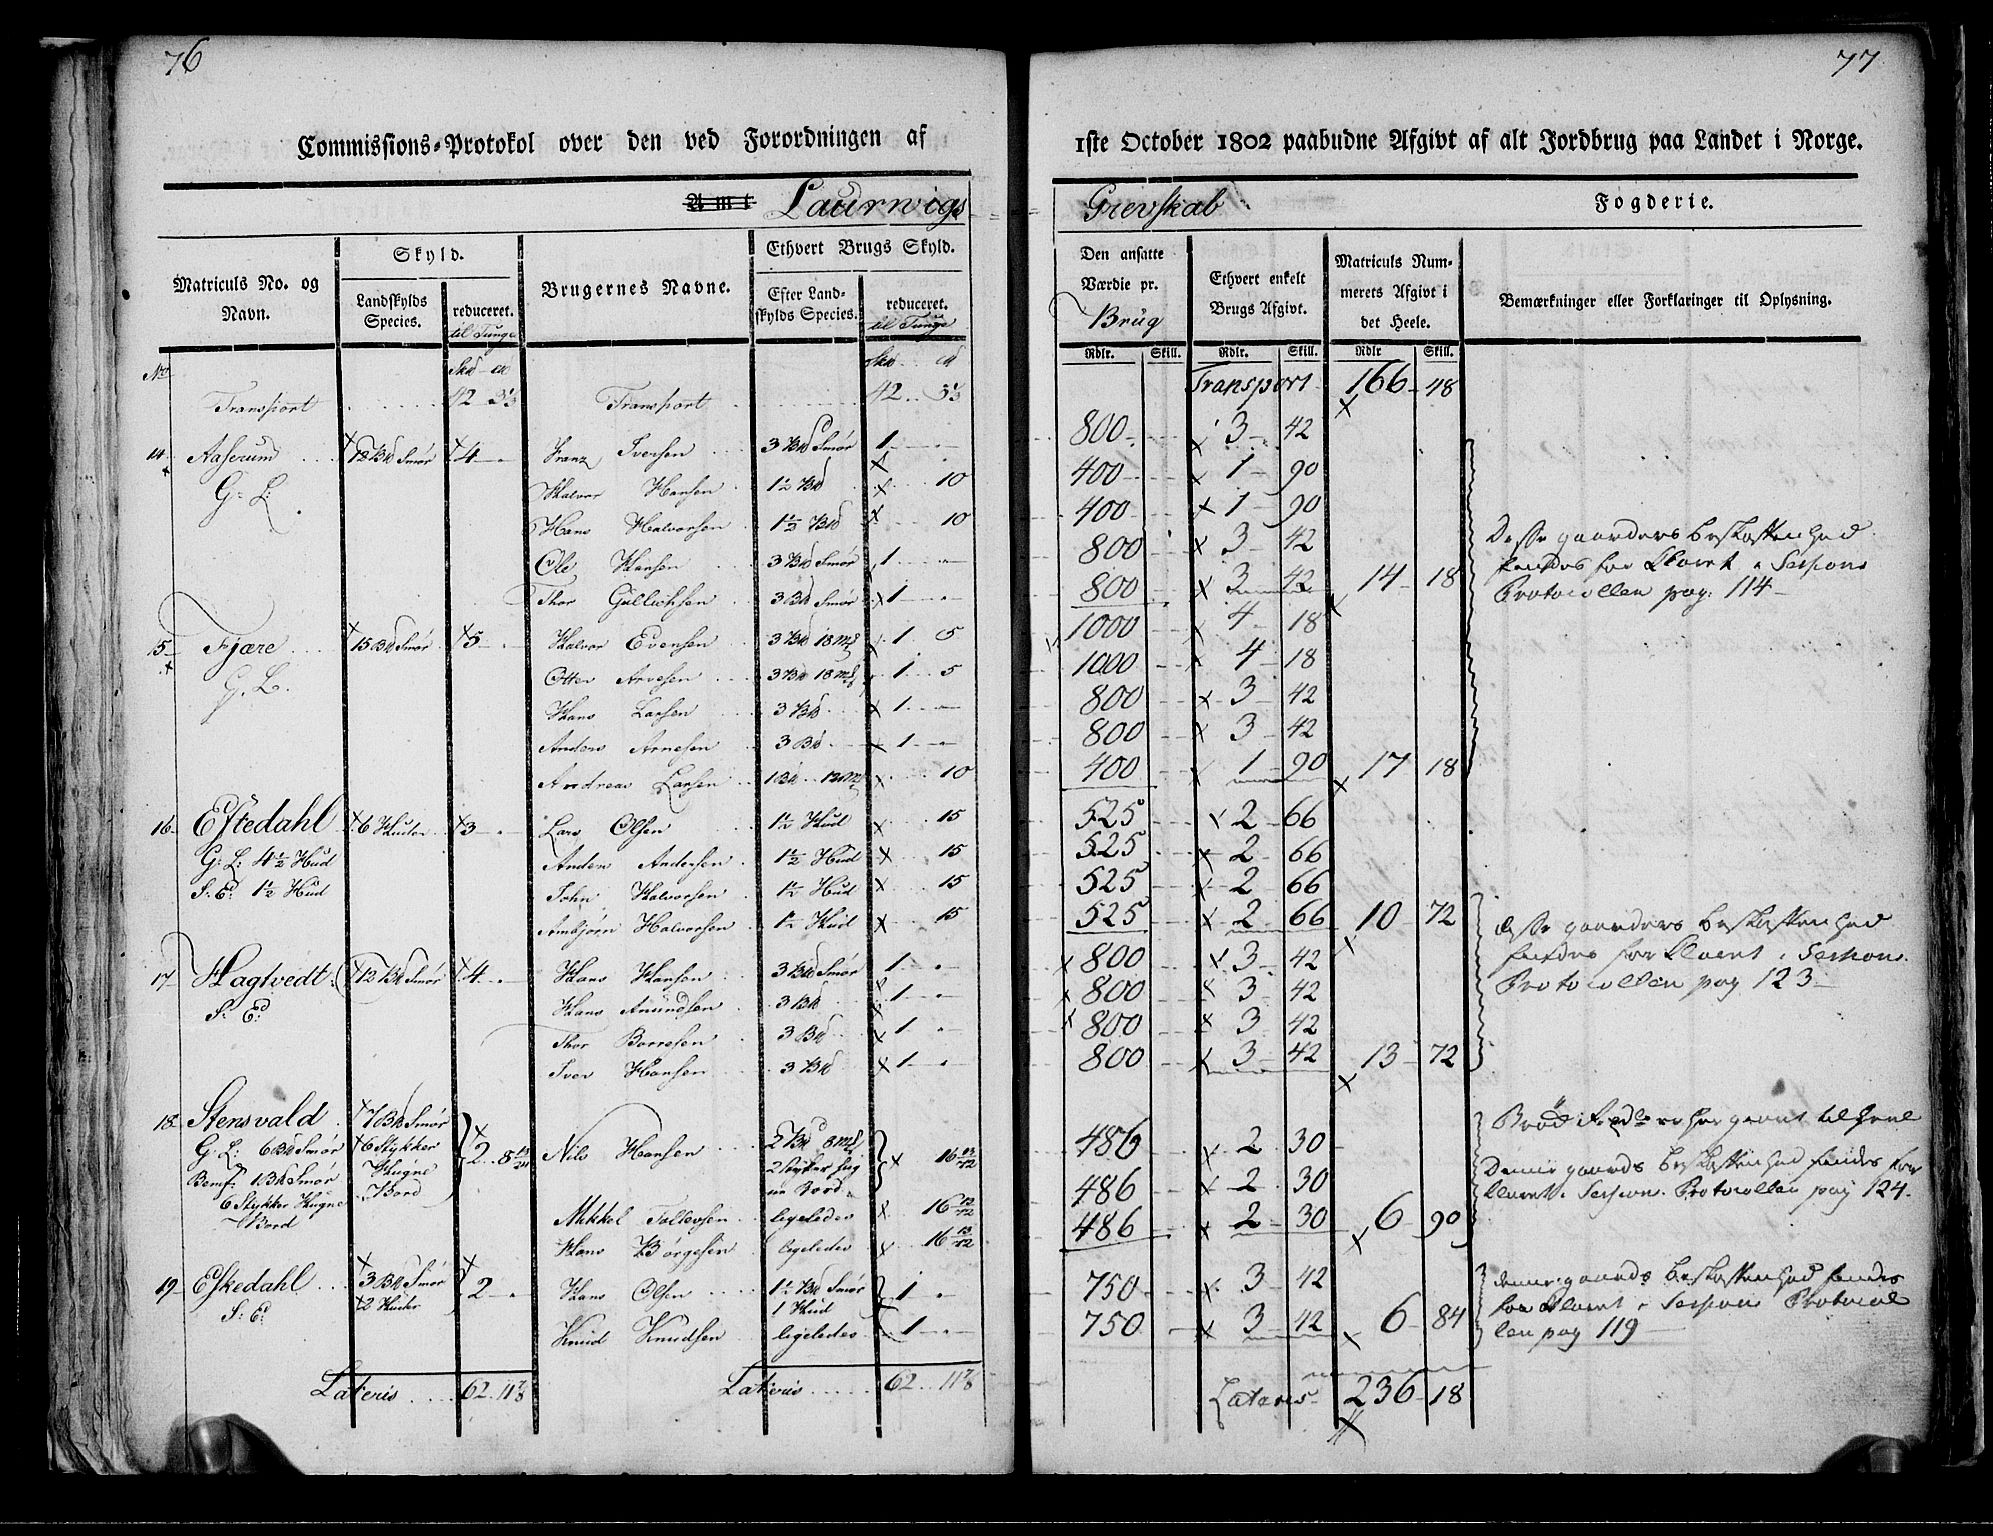 76
Commissions-Protokol over den ved Forordningen af
Amt Laurwigs
Matriculs No. og Navn.
Skyld.
Landskylds Species.
reduceret. til Tunge
Brugernes Navne.
Ethvert Brugs Skyld.
Efter Landskylds Species.
reduceret. til Tunge
No
Transport 42 Transport 42
14 Aaserum 12 Bd Smør 4 - Franz Iversen 3 Bd Smør 1 -
G: L: Halvor Hansen 1½ Bd 10
Hans Halvorsen 1½ Bd 10
Ole Hansen 3 Bd Smør 1 -
Thor Gullichsen 3 Bd Smør 1 -
15 Fjære 15 Bd Smør 5 - Halvor Evensen 3 Bd 18 m 1 5
G. L. Otter Arvesen 3 Bd 18 m 1 5
Hans Larsen 3 Bd 1 -
Anders Arnesen 3 Bd 1 -
Andreas Larsen 1 Bd 12 m 10
16 Eftedahl 6 Huder 3 - Lars Olsen 1½ Hud 15
G: L: 4½ Hud Anders Andersen 1½ Hud 15
S: E: 1½ Hud John Halvorsen 1½ Hud 15
Ambjørn Halvorsen 1½ Hud 15
17 Hagtvedt 12 Bd Smør 4 - Hans Hansen 3 Bd Smør 1 -
S: E: Hans Amundsen 3 Bd 1 -
Thor Borresen 3 Bd 1 -
Iver Hansen 3 Bd 1 -
18 Stensvald 7 Bd Smør
G: L: 6 Bd Smør 6 Stykker 2 8 Nils Hansen 2 Bd 8 m 16
Benf: 1 Bd Smør Hugne Bord 2 Stykker
6 Stykker Hugne Bord
Mikkel Tollevsen ligeledes 16
Hans Børgesen ligeledes 16
19 Eskedahl 3 Bd Smør 2 - Hans Olsen 1½ Bd Smør 1 -
S: E: 2 Huder 1 Hud
Knud Knudsen ligeledes 1 -
Lateris 62 11⅞ Lateris 62 11⅞
77
1ste October 1802 paabudne Afgivt af alt Jordbrug paa Landet i Norge.
Grevskab Fogderie.
Den ansatte Værdie pr. Brug
Ethvert enkelt Brugs Afgivt.
Matriculs Nummerets Afgivt i det Heele.
Bemærkninger eller Forklaringer til Oplysning.
Rdlr. Skill. Rdlr. Skill. Rdlr Skill.
Transport 166 - 48
800 3 - 42
400 1 - 90
400 1 - 90
800 3 - 42
800 3 - 42 14 - 18
Disse gaarders beskaffenhed
findes forklaret i Sessions
Protocollen pag: 114
1000 4 - 18
1000 4 - 18
800 3 - 42
800 3 - 42
400 1 - 90 17 18
525 2 - 66
525 2 - 66
525 2 - 66
525 2 - 66 10 - 72
800 3 - 42
800 3 - 42
800 3 - 42
800 3 - 42 13 - 72
disse gaarders beskaffenhed
findes forklaret i Sessions
Protocollen pag 123
486 2 - 30
486 2 - 30
486 2 - 30 6 - 90
Denne gaards beskaffenhed findes for
klaret i Session. Protocollen pag 124.
750 3 - 42
750 3 - 42 6 - 84
denne gaards beskaffenhed findes
forklaret i Sessions Protocol
len pag 119
Lateris 236 - 18